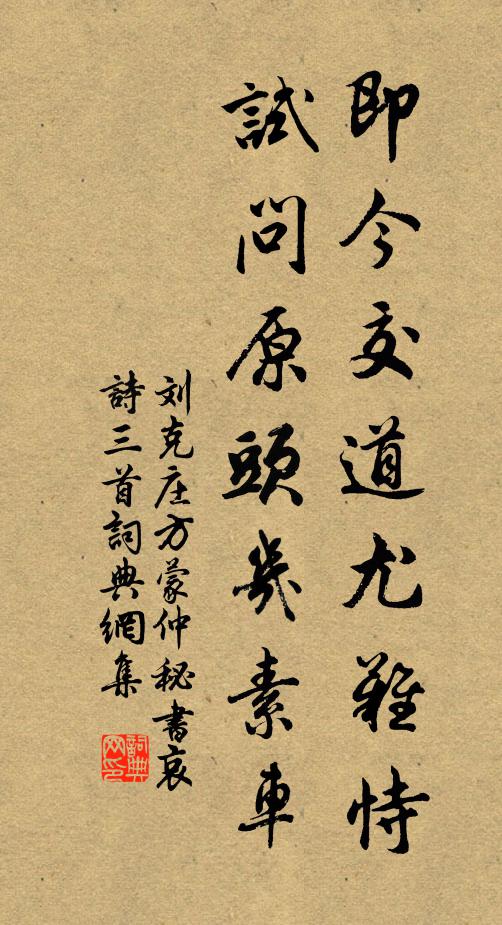 即今交道尤難恃
試問原頭幾素車
刘克庄方蒙仲秘書哀
詩三首詞典網集
詞典
网印